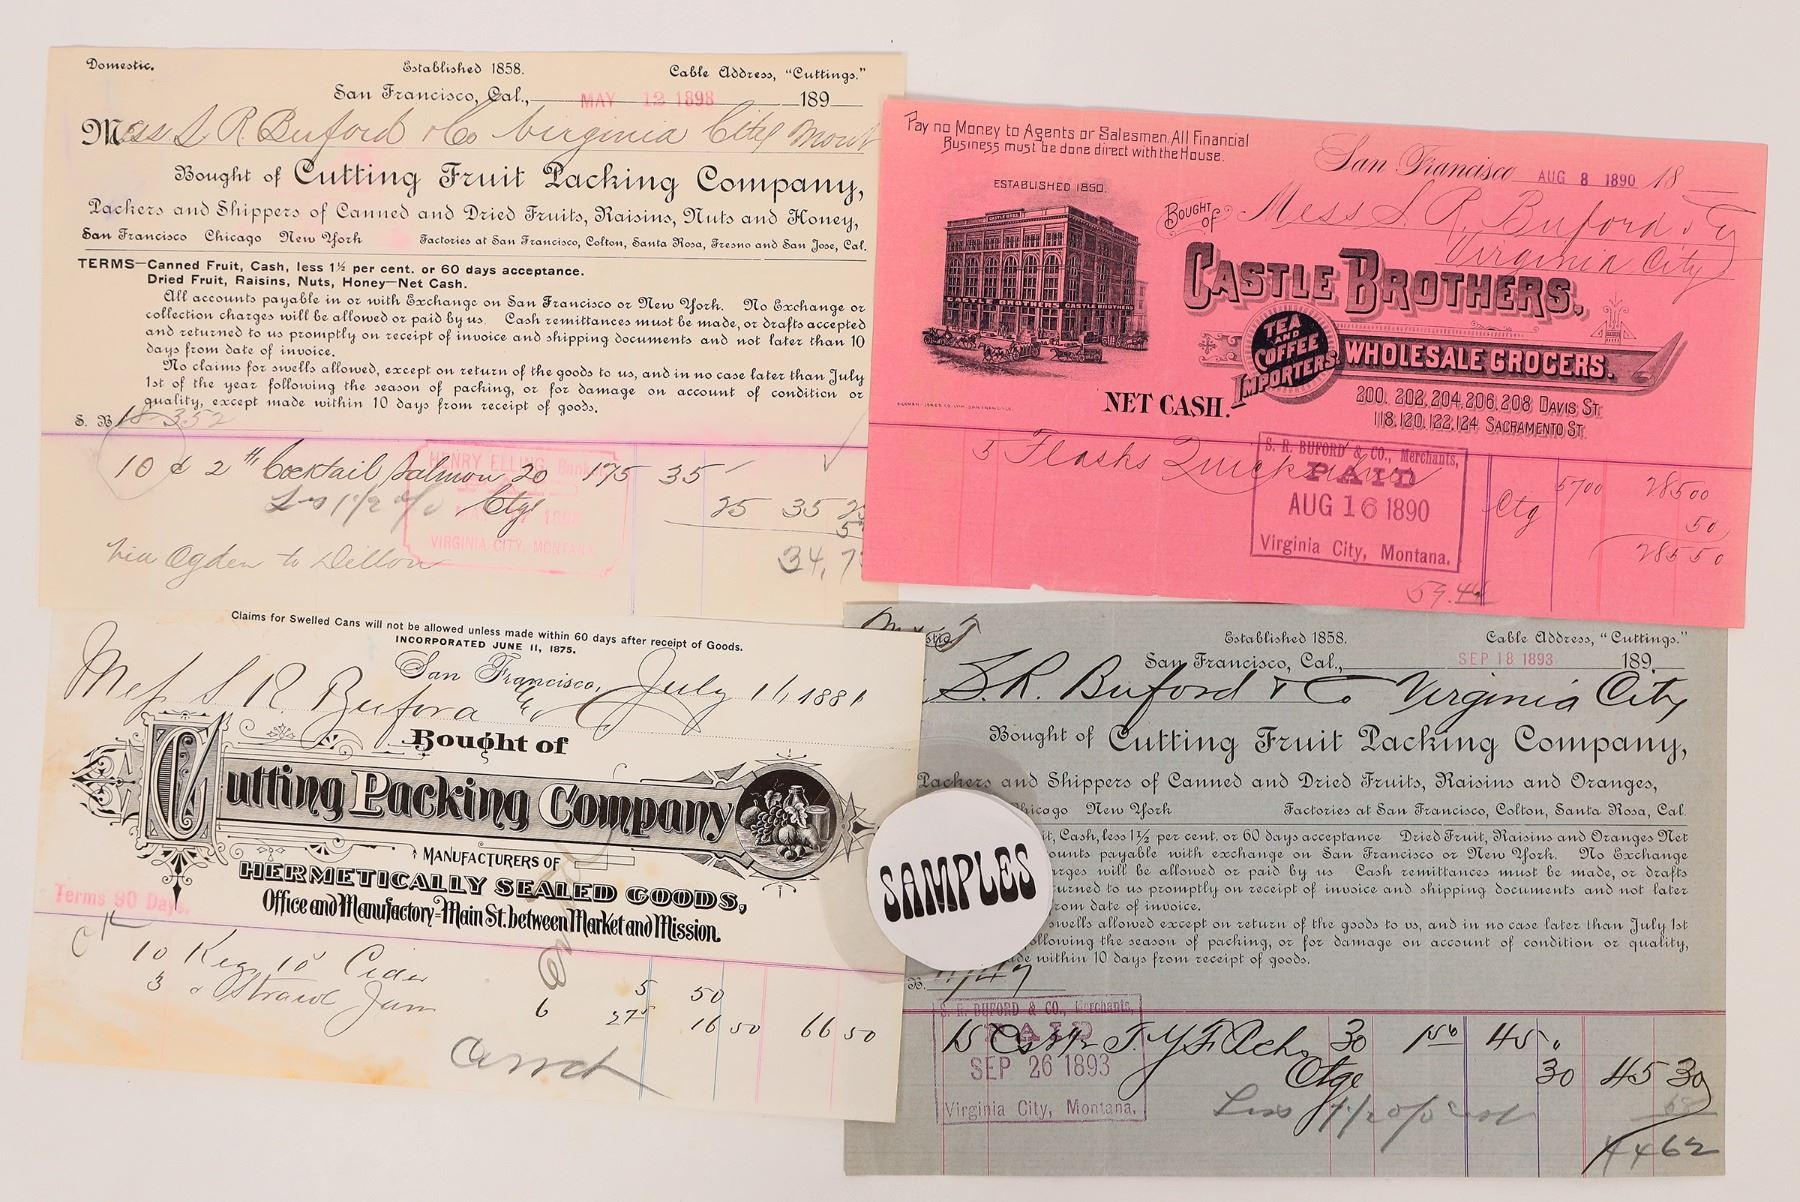 Domestic. Established 1858. Cable Address, "Cuttings."
San Francisco, Cal., MAY 12 1898 189
Mess S. R. Buford & Co Virginia City Mont
Bought of Cutting Fruit Packing Company,
Packers and Shippers of Canned and Dried Fruits, Raisins, Nuts and Honey,
San Francisco Chicago New York Factories at San Francisco, Colton, Santa Rosa, Fresno and San Jose, Cal.
TERMS—Canned Fruit, Cash, less 1½ per cent. or 60 days acceptance.
Dried Fruit, Raisins, Nuts, Honey—Net Cash.
All accounts payable in or with Exchange on San Francisco or New York. No Exchange or
collection charges will be allowed or paid by us. Cash remittances must be made, or drafts accepted
and returned to us promptly on receipt of invoice and shipping documents and not later than 10
days from date of invoice.
No claims for swells allowed, except on return of the goods to us, and in no case later than July
1st of the year following the season of packing, or for damage on account of condition or
quality, except made within 10 days from receipt of goods.
S. B. 18352
10 c 2 # Cocktail Salmon 20 175 35
Less 1 1/2 o/o Ctge 25 35 25
HENRY ELLING, Banker
VIRGINIA CITY, MONTANA
via Ogden to Dillon 34,7
Pay no Money to Agents or Salesmen, All Financial
Business must be done direct with the House.
San Francisco AUG 8 1890 18
ESTABLISHED 1850.
Bought of Mess S. R. Buford & Cy
Virginia City
CASTLE BROS.
CASTLE BROTHERS
CASTLE BROTHERS,
TEA AND COFFEE IMPORTERS
WHOLESALE GROCERS.
NET CASH.
200, 202, 204, 206, 208 DAVIS ST.
118, 120, 122, 124 SACRAMENTO ST.
5 Flasks Quicksilver 5700 28500
Ctg 50
28550
S. R. BUFORD & CO., Merchants,
PAID
AUG 16 1890
Virginia City, Montana.
59.44
Claims for Swelled Cans will not be allowed unless made within 60 days after receipt of Goods.
INCORPORATED JUNE 11, 1875.
San Francisco, July 11, 1881
Mess S. R. Buford & Co
Bought of
Cutting Packing Company
MANUFACTURERS OF
HERMETICALLY SEALED GOODS,
Office and Manufactory=Main St. between Market and Mission.
Terms 90 Days.
10 Keg 10 Cider 5 50
3 c Straw Jam 6 275 16 50 66 50
SAMPLES
Established 1858. Cable Address, "Cuttings."
San Francisco, Cal., SEP 18 1893 189
S. R. Buford & Co Virginia City
Bought of Cutting Fruit Packing Company,
Packers and Shippers of Canned and Dried Fruits, Raisins and Oranges,
Chicago New York Factories at San Francisco, Colton, Santa Rosa, Cal.
Cash, less 1½ per cent. or 60 days acceptance Dried Fruit, Raisins and Oranges Net
payable with exchange on San Francisco or New York. No Exchange
will be allowed or paid by us Cash remittances must be made, or drafts
to us promptly on receipt of invoice and shipping documents and not later
from date of invoice.
swells allowed except on return of the goods to us, and in no case later than July 1st
following the season of packing, or for damage on account of condition or quality,
within 10 days from receipt of goods.
S. R. BUFORD & CO., Merchants,
PAID
SEP 26 1893
Virginia City, Montana.
30 1.50 45
Ctge 30 45 30
Less 1 1/2 o/o 68
44 62